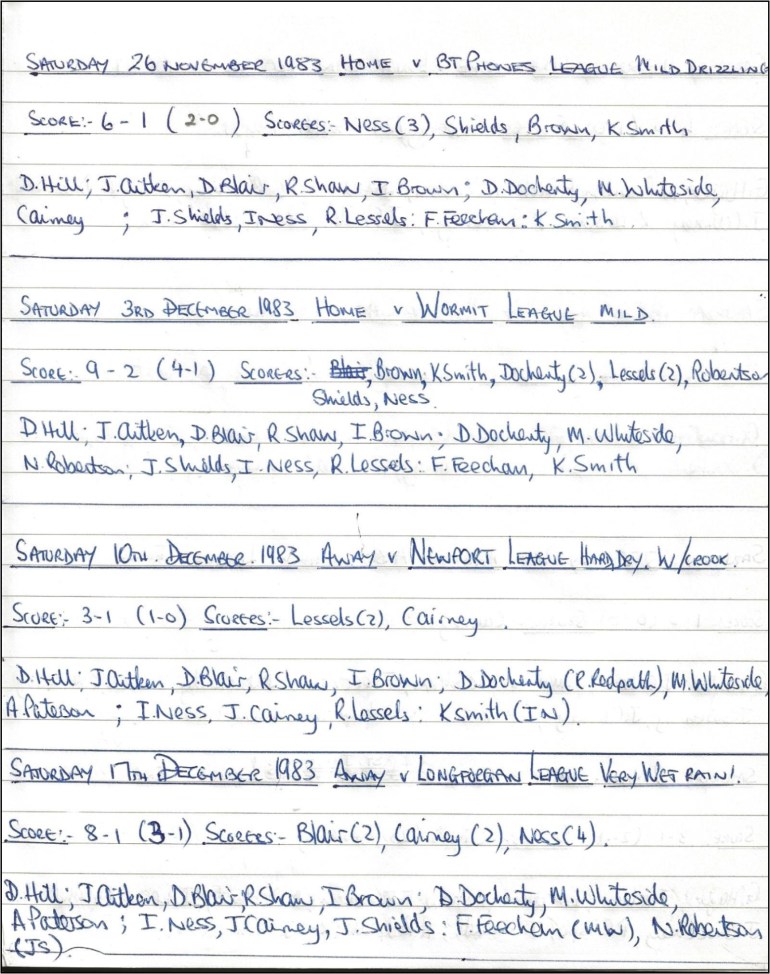 SATURDAY 26 NOVEMBER 1983 HOME v BT PHONES LEAGUE MILD DRIZZLING
SCORE:- 6-1 (2-0) SCORERS:- NESS(3), Shields, Brown, K.Smith
D.Hill; J.Aitken, D.Blair, R.Shaw, I.Brown; D.Docherty, M.Whiteside,
Cairney ; J.Shields, I Ness, R.Lessels: F.Feechan: K.Smith
SATURDAY 3RD DECEMBER 1983 HOME v WORMIT LEAGUE MILD.
SCORE:- 9-2 (4-1) SCORERS:- Blair, Brown, K Smith, Docherty(2), Lessels(2), Robertson
Shields, Ness.
D Hill; J.Aitken, D.Blair, R Shaw, I.Brown; D.Docherty, M.Whiteside,
N.Robertson; J.Shields, I.Ness, R.Lessels: F.Feechan, K.Smith
SATURDAY 10TH. DECEMBER. 1983 AWAY v NEWPORT LEAGUE HARD DRY. W/CROOK.
SCORE:- 3-1 (1-0) SCORERS:- Lessels(2), Cairney.
D.Hill; J Aitken, D.Blair, R.Shaw, I.Brown; D.Docherty (R.Redpath), M.Whiteside,
A Paterson ; I.Ness, J.Cairney, R.Lessels: K Smith (IN).
SATURDAY 17TH DECEMBER 1983 AWAY v LONGFORGAN LEAGUE VERY WET RAIN!.
SCORE:- 8-1 (3-1) SCORERS:- Blair(2), Cairney (2), Ness(4).
D.Hill; J Aitken, D.Blair, R.Shaw, I Brown; D.Docherty, M.Whiteside,
A Paterson ; I.Ness, J Cairney, J.Shields: F.Feechan (MW), N.Robertson
(JS).